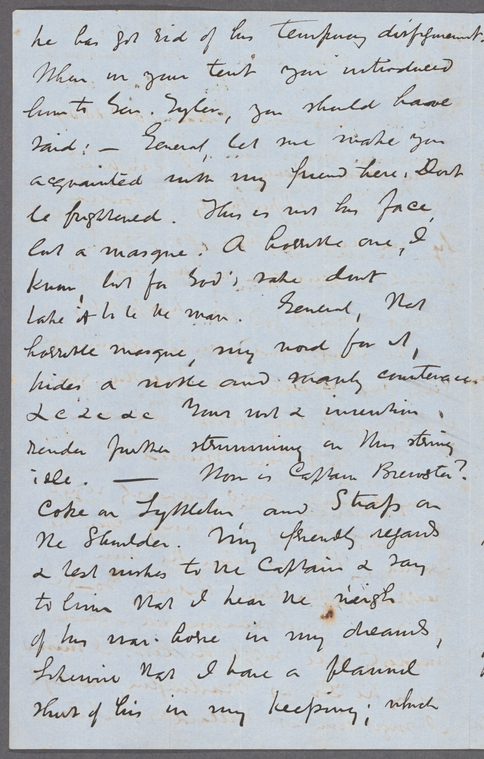 he has got rid of his temporary disfigurement.
When in your tent you introduced
him to Gen. Tyler, you should have
said: — General, let me make you
acquainted with my friend here. Don't
be frightened. This is not his face,
but a masque. A horrible one, I
know, but for God's sake don't
take it to be the man. General, that
horrible masque, my word for it,
hides a noble and manly countenance
&c &c &c Your wit & invention
render further strumming on this string
idle. — How is Captain Brewster?
Coke on Lyttleton and Straps on
the Shoulder. My friendly regards
& best wishes to the Captain & say
to him that I hear the neigh
of his war-horse in my dreams,
Likewise that I have a flannel
shirt of his in my keeping; which